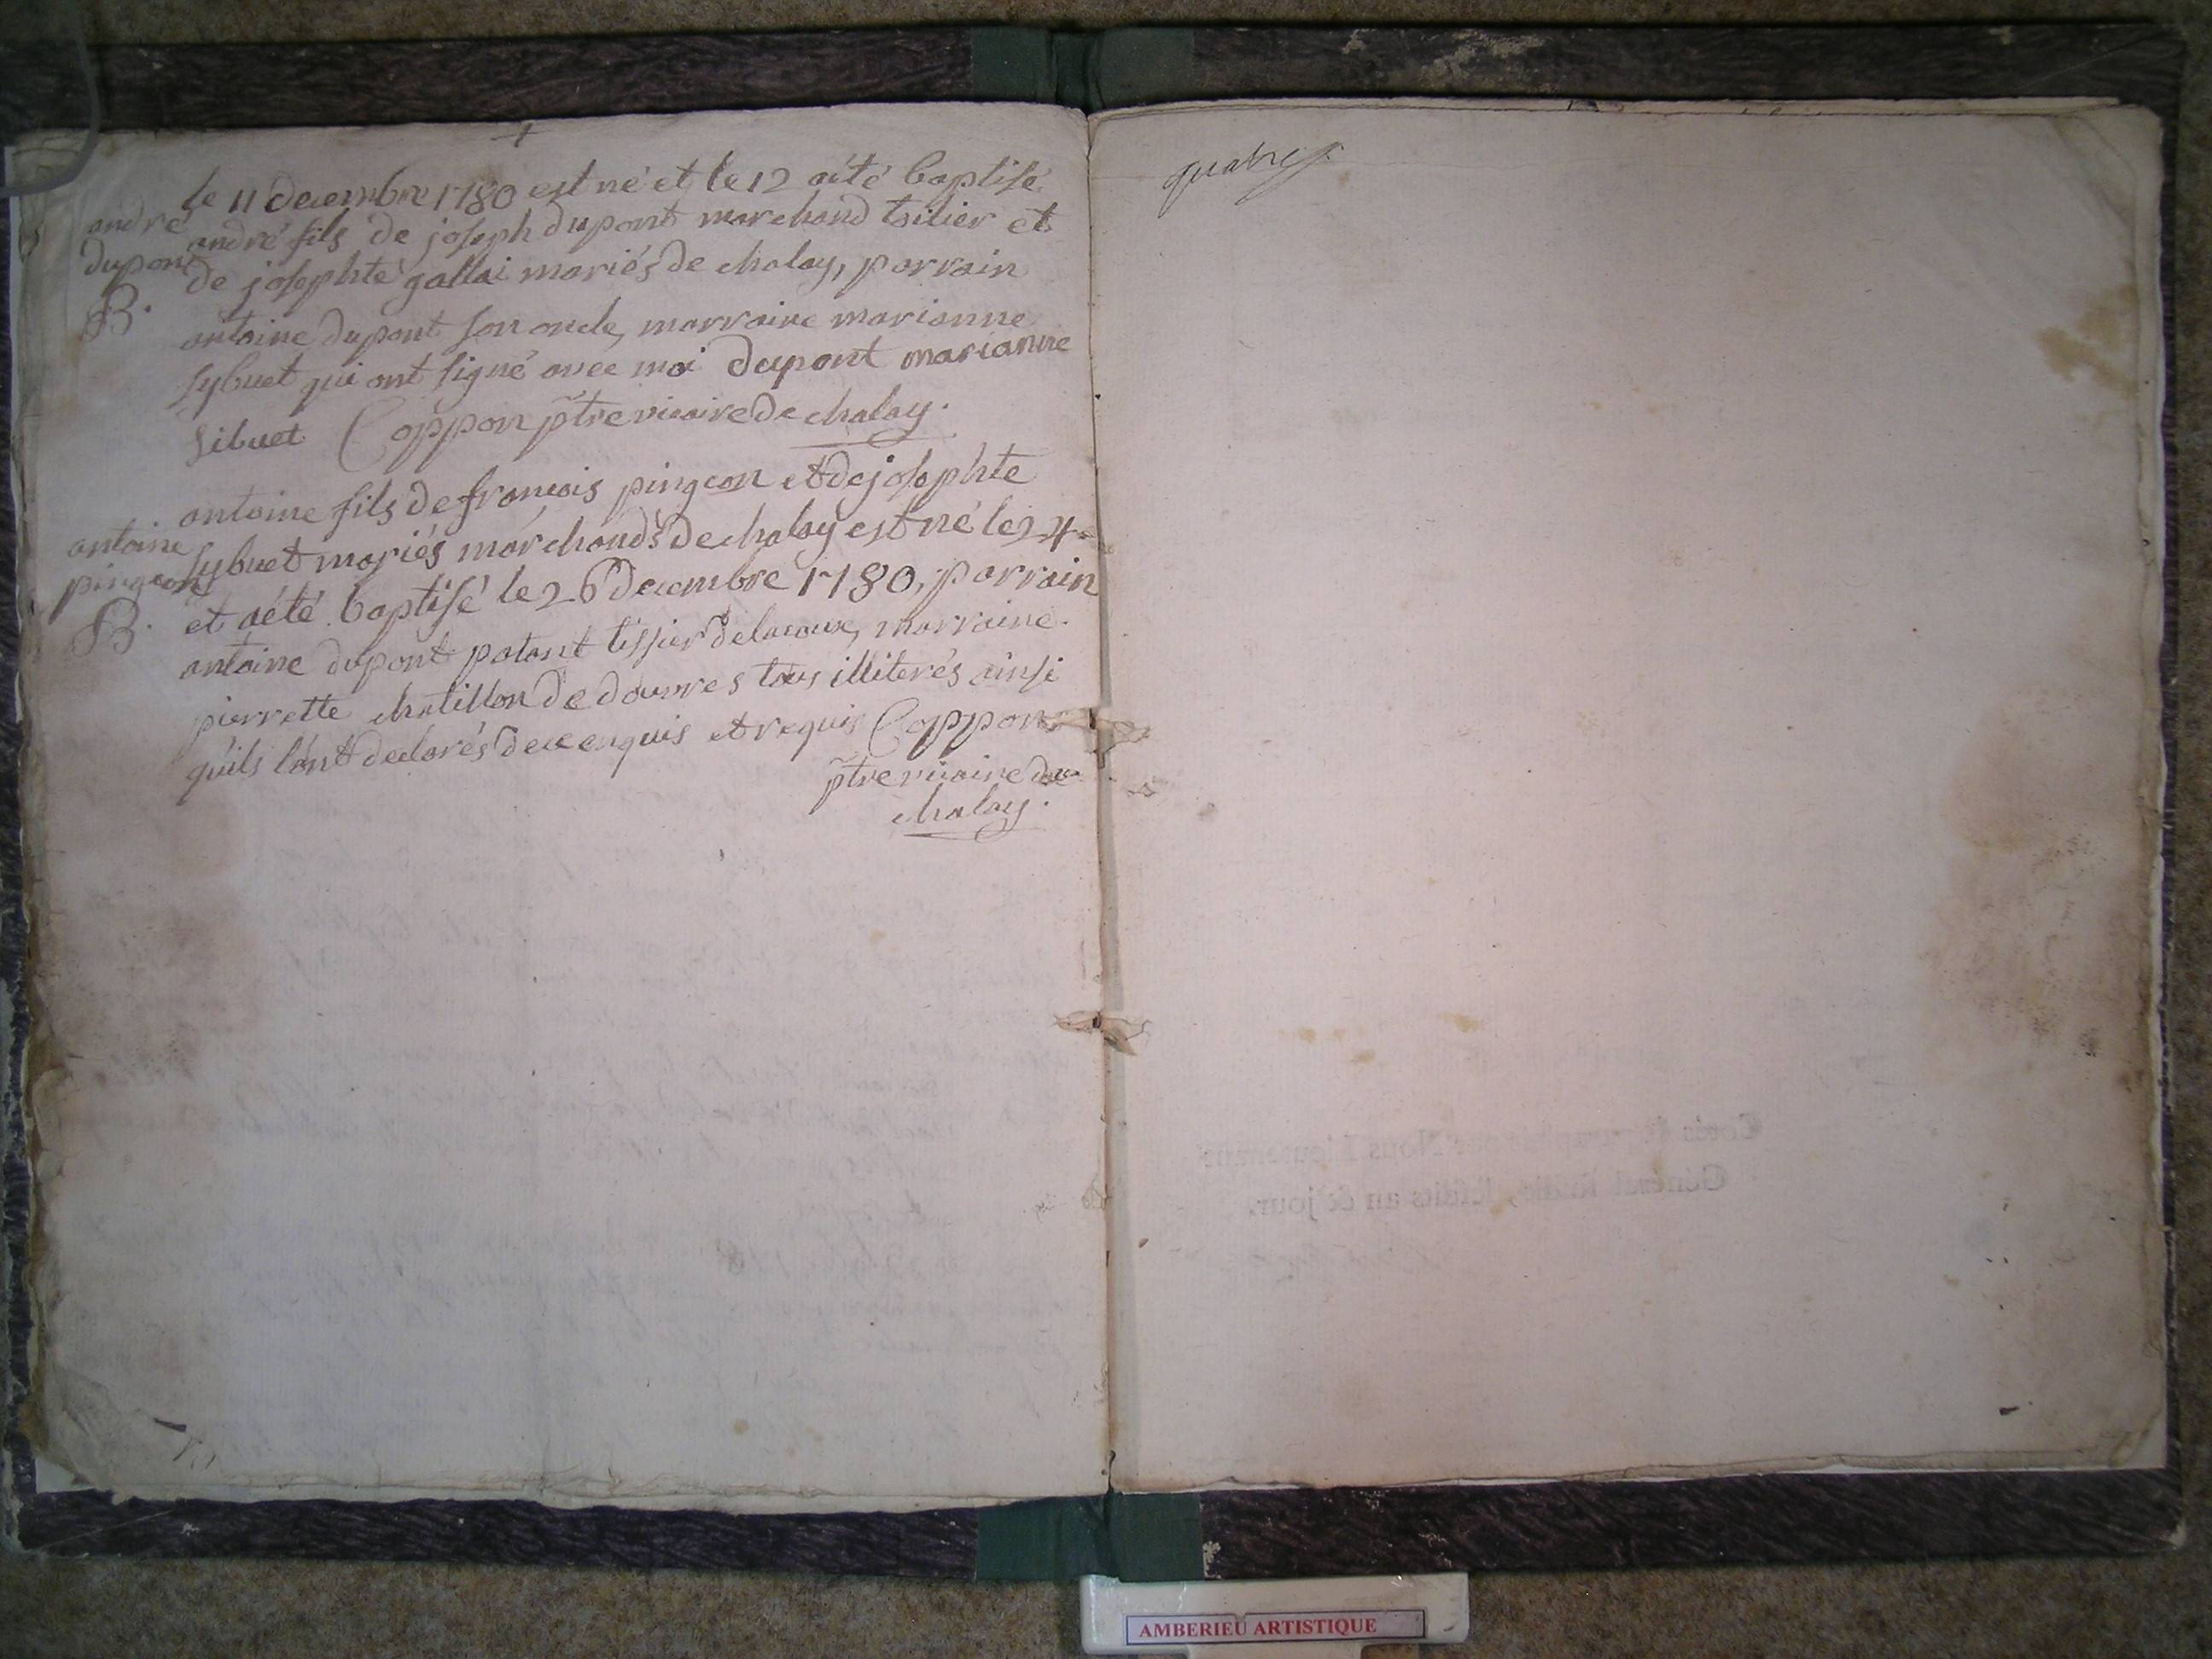 le 11 decembre 1780 est né et le 12 aété baptisé
andré
dupont
B.
andré fils de joseph dupont marchand toilier et
de josephte gallai mariés de chalay, parrain
antoine dupont son oncle, marraine marianne
sybuet qui ont signé avec moi dupont marianne
sibuet Coppon ptre vicaire de chalay.
antoine
pingeon
B.
antoine fils de francois pingeon et de josephte
sybuet mariés marchands de chalay est né le 24
et aété baptisé le 26 decembre 1780, parrain
antoine dupont patant tissier marraine
pierrette chatillon de douvres tous illiterés ainsi
qu'ils l'ont declarés de ce enquis et requis Coppon
ptre vicaire de
chalay.
quatre
Cotés & paraphés par Nous Lieutenant
Général susdit, lesdits an & jour.
AMBERIEU ARTISTIQUE